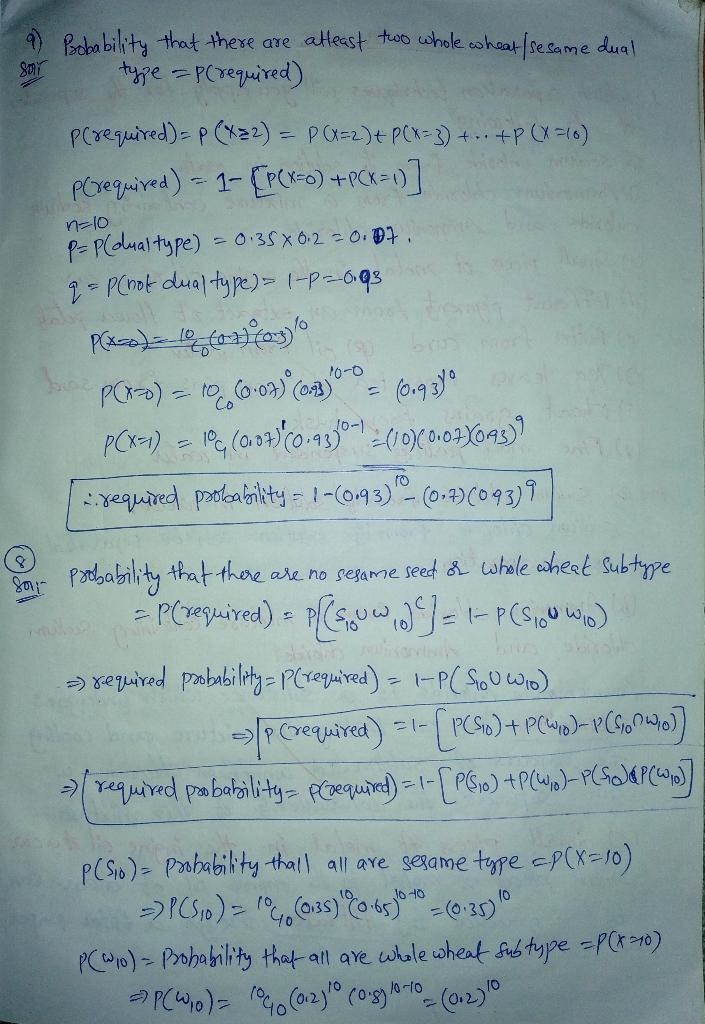 9) Probability that there are atleast two whole wheat/sesame dual
Sol:- type = P(required)
P(required) = P(X≥2) = P(X=2)+P(X=3)+..+P(X=10)
P(required) = 1-[P(X=0)+P(X=1)]
n=10
P=P(dual type) = 0.35 x 0.2 = 0.07.
q = P(not dual type) = 1-P = 0.93
P(X=0) = 10C0 (0.7)^0 (0.3)^10
P(X=0) = 10C0 (0.07)^0 (0.93)^10-0 = (0.93)^10
P(X=1) = 10C1 (0.07)^1 (0.93)^10-1 = (10)(0.07)(0.93)^9
∴ required probability = 1-(0.93)^10 - (0.7)(0.93)^9
(8)
Sol:- probability that there are no sesame seed & whole wheat subtype
= P(required) = P[(S10 ∪ W10)^C] = 1-P(S10 ∪ W10)
⇒ required probability = P(required) = 1-P(S10 ∪ W10)
⇒ P(required) = 1-[P(S10)+P(W10)-P(S10 ∩ W10)]
⇒ required probability = P(required) = 1-[P(S10)+P(W10)-P(S10) P(W10)]
P(S10) = Probability thall all are sesame type = P(X=10)
⇒ P(S10) = 10C10 (0.35)^10 (0.65)^10-10 = (0.35)^10
P(W10) = Probability that all are whole wheat subtype = P(X=10)
⇒ P(W10) = 10C10 (0.2)^10 (0.8)^10-10 = (0.2)^10